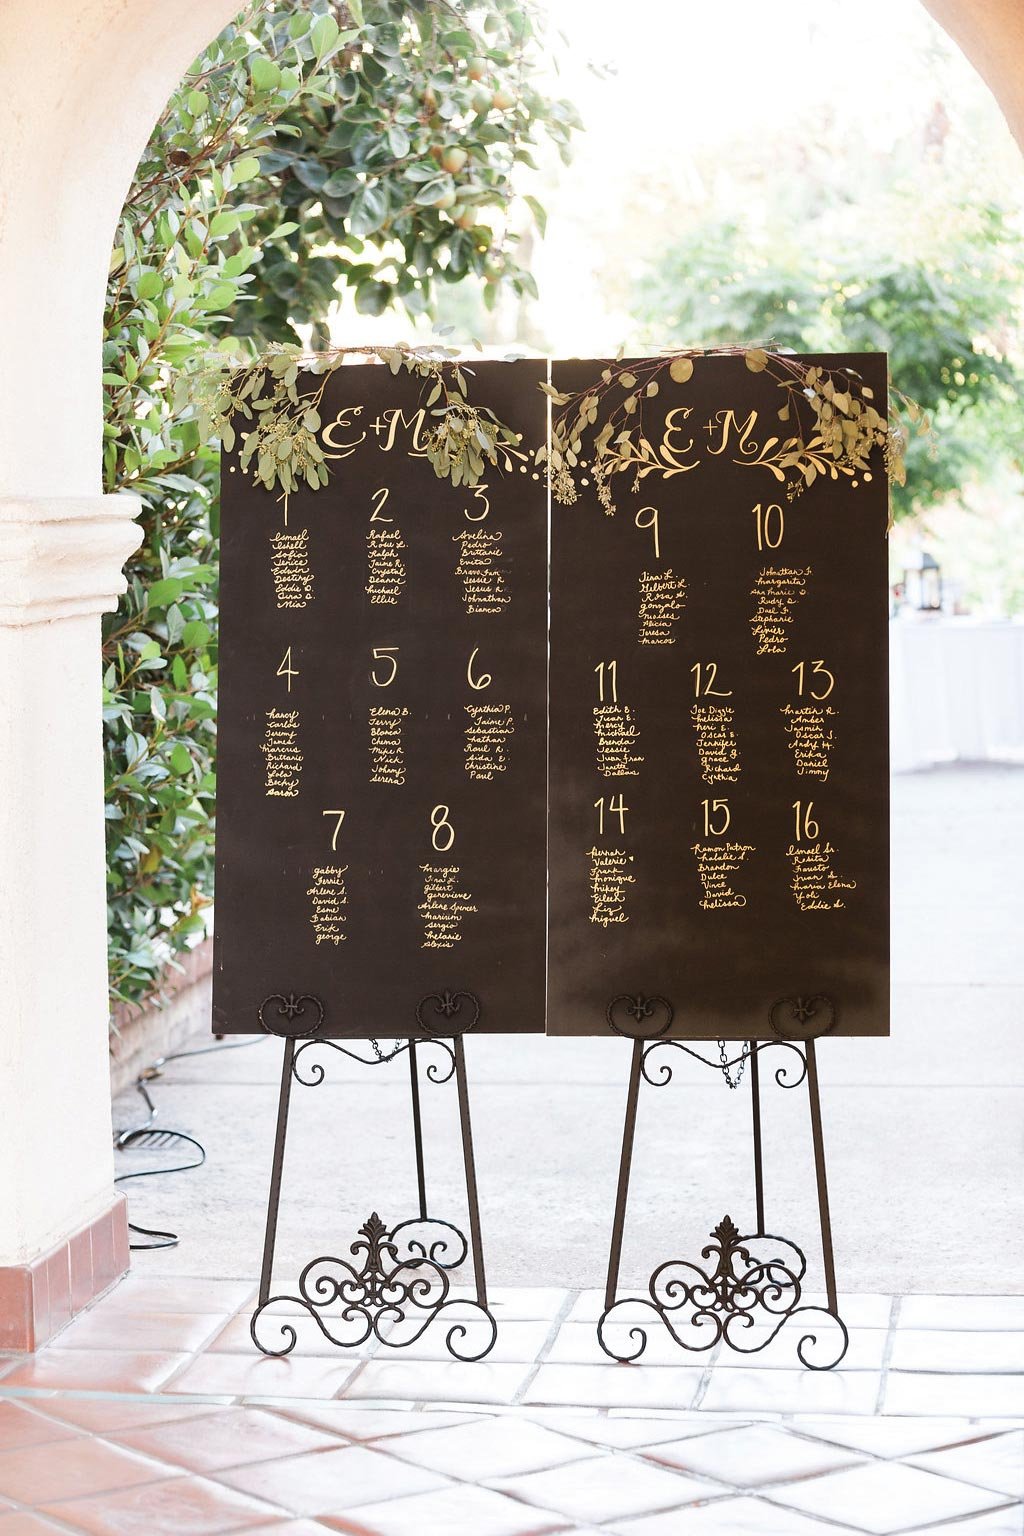 E+M
1
Ismael
Ishell
Sofia
Jenice
Edwin
Destiny
Eddie D.
Gina S.
Mia
2
Rafael
Rose L.
Ralph
Jaime R.
Crystal
Deanne
Michael
Ellie
3
Avelina
Pedro
Brittanie
Evita
Jessie R.
Jesus R.
Johnathan
Bianca
4
Nancy
Carlos
Jeremy
James
Marcus
Brittanie
Richard
Lola
Becky
Aaron
5
Elena B.
Terry
Blanca
Chema
Mike R.
Nick
Johnny
Serena
6
Cynthia P.
Jaime P.
Sebastian
Nathan
Raul R.
Aida E.
Christine
Paul
7
Gabby
Ferrie
Arlene S.
David S.
Esme
Babian
Erik
George
8
Margie
Tina L.
Gilbert
Genevieve
Arlene Spencer
Maririn
Sergio
Melanie
Alexis
E+M
9
Tina L.
Gilbert L.
Rosa A.
Gonzalo
Moises
Alicia
Teresa
Marcos
10
Johnathan F.
Margarita
Ann Marie D.
Rudy D.
Dael F.
Stephanie
Javier
Pedro
Lola
11
Edith B.
Juan E.
Mercy
Michael
Brenda
Jessie
Juan Fran
Janette
Dallana
12
Joe Diggle
Melissa
Neri E.
Oscar E.
Jennifer
David G.
Grace
Richard
Cynthia
13
Martin R.
Amber
Jasmin
Oscar J.
Andy H.
Erika
Daniel
Jimmy
14
Hernan
Valerie
Frank
Monique
Mikey
Eileen
Liz
Miguel
15
Ramon Patron
Natalie S.
Brandon
Dulce
Vince
David
Melissa
16
Ismael Sr.
Rosita
Fausto
Juan S.
Maria Elena
Yoli
Eddie S.